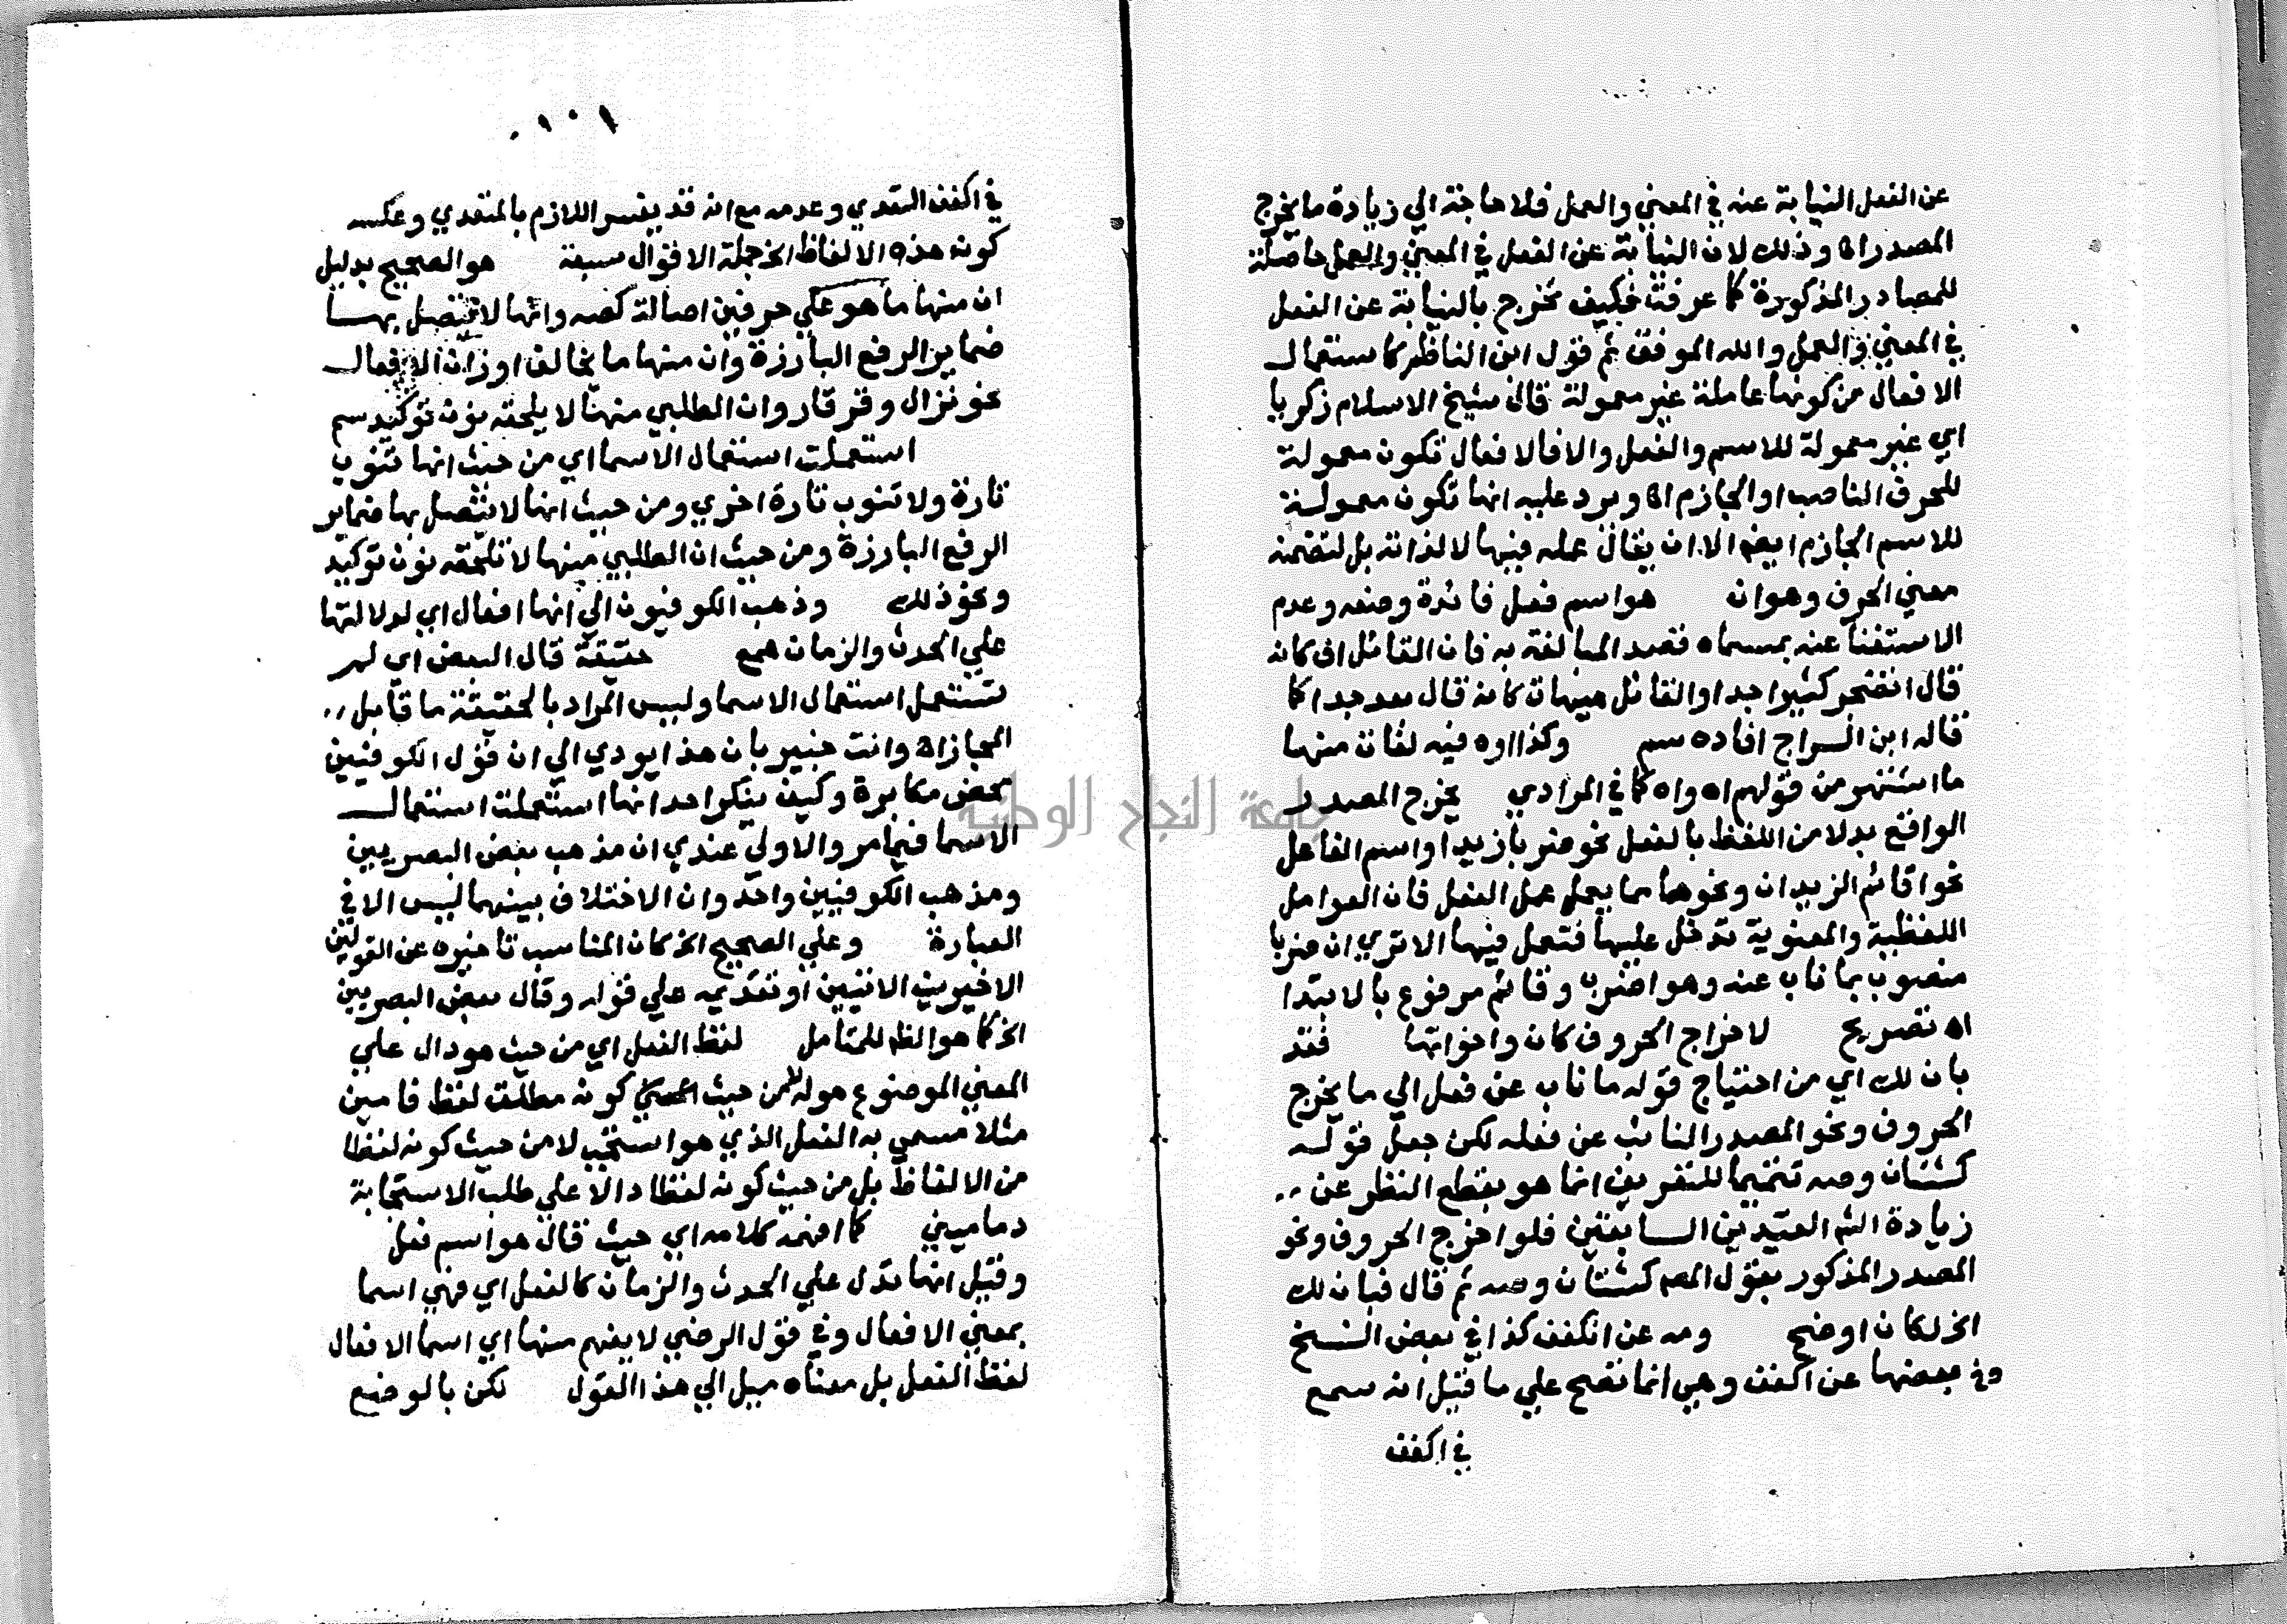 عن الفعل النيابة عنه في المعني والعمل فلا حاجة الي زيادة ما يخرج
المصدر اه وذلك لان النيابة عن الفعل في المعني والعمل حاصلة
للمصادر المذكورة كما عرفت فكيف تخرج بالنيابة عن الفعل
في المعني والعمل والله الموفق ثم قول ابن الناظم كاستعمال
الافعال من كونها عاملة غير معمولة قال شيخ الاسلام زكريا
اي غير معمولة للاسم والفعل والا فالافعال تكون معمولة
للحرف الناصب او الجازم اه ويرد عليه انها تكون معمولة
للاسم الجازم ايضم الا ان يقال عمله فيها لا لذاته بل لتضمنه
معني الحرف وهو ان هو اسم فعل فائدة وضعه وعدم
الاستغنا عنه بمسماه قصد المبالغة به فان القائل اف كانه
قال اتضجر كثيرا جدا والقائل هيهات كانه قال بعد جدا كما
قاله ابن السراج افاده سم وكذا اوه فيه لغات منها
ما اشتهر من قولهم اه واه كما في المرادي يخرج المصدر
الواقع بدلا من اللفظ بالفعل نحو ضربا زيدا واسم الفاعل
نحو اقائم الزيدان ونحوها مما يعمل عمل الفعل فان العوامل
اللفظية والمعنوية تدخل عليها فتعمل فيها الا تري ان ضربا
منصوب بما ناب عنه وهو اضرب وقائم مرفوع بالابتدا
اه تصريح لاخراج الحروف كان واخواتها فقد
بان لك اي من احتياج قوله ما ناب عن فعل الي ما يخرج
الحروف ونحو المصدر النائب عن فعله لكن جعل قوله
كشتان وصه تتميما للتعريف انما هو بقطع النظر عن
زيادة الشم القيدين السابقين فلو اخرج الحروف ونحو
المصدر المذكور بقول المصم كشتان وصه ثم قال فبان لك
الخ لكان اوضح ومه عن انكفف كذا في بعض النسخ
وفي بعضها عن اكفف وهي انما تصح علي ما قيل انه سمع
في اكفف
١٠١
في اكفف التعدي وعدمه مع انه قد يفسر اللازم بالمتعدي وعكسه
كونه هذه الالفاظ الخ جملة الاقوال سبعة هو الصحيح بدليل
ان منها ما هو علي حرفين اصالة كصه وانها لا يتصل بها
ضماير الرفع البارزة وان منها ما يخالف اوزان الافعال
نحو نزال وقرقار وان الطلبي منها لا يلحقه نون توكيد سم
استعملت استعمال الاسما اي من حيث انها تنوب
تارة ولا تنوب تارة اخري ومن حيث انها لا يتصل بها ضماير
الرفع البارزة ومن حيث ان الطلبي منها لا تلحقه نون توكيد
ونحو ذلك وذهب الكوفيون الي انها افعال اي لدلالتها
علي الحدث والزمان همع حقيقة قال البعض اي لم
تستعمل استعمال الاسما وليس المراد بالحقيقة ما قابل
المجاز اه وانت خبير بان هذا يودي الي ان قول الكوفيين
محض مكابرة وكيف ينكر احد انها استعملت استعمال
الاسما فيما مر والاولي عندي ان مذهب بعض البصريين
ومذهب الكوفيين واحد وان الاختلاف بينهما ليس الا في
العبارة وعلي الصحيح الخ كان المناسب تاخيره عن القولين
الاخيرين الاتيين او تقديمه علي قوله وقال بعض البصريين
الخ كما هو الظم للمتامل لفظ الفعل اي من حيث هو دال علي
المعني الموضوع هو له لا من حيث كونه مطلق لفظ فامين
مثلا مسمي به الفعل الذي هو استجب لا من حيث كونه لفظا
من الالفاظ بل من حيث كونه لفظا دالا علي طلب الاستجابة
دماميني كما افهمه كلامه اي حيث قال هو اسم فعل
وقيل انها تدل علي الحدث والزمان كالفعل اي فهي اسما
بمعني الافعال وفي قول الرضي لا يفهم منها اي اسما الافعال
لفظ الفعل بل معناه ميل الي هذا القول لكن بالوضع
جامعة النجاح الوطنية